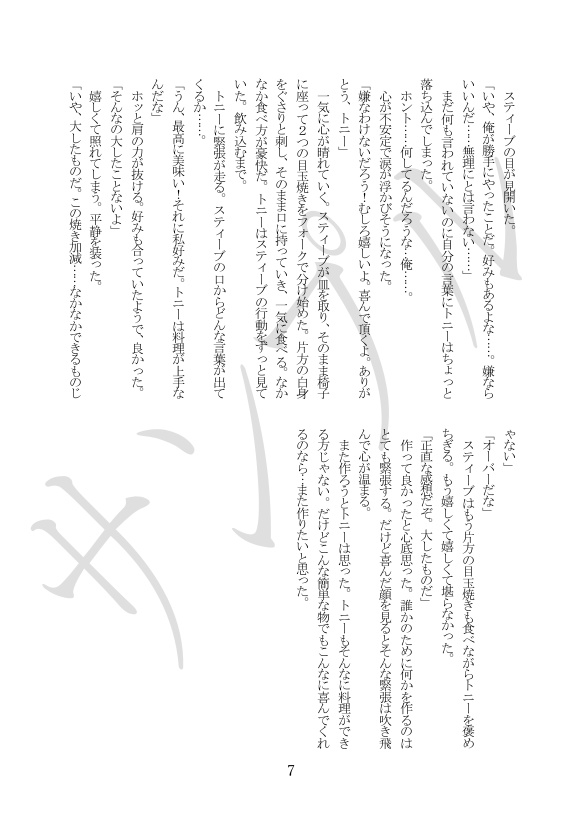 スティーブの目が見開いた。
「いや、俺が勝手にやったことだ。好みもあるよな……。嫌なら
いいんだ……無理にとは言わない……」
まだ何も言われていないのに自分の言葉にトニーはちょっと
落ち込んでしまった。
ホント……何してるんだろうな…俺……。
心が不安定で涙が浮かびそうになった。
「嫌なわけないだろう！むしろ嬉しいよ。喜んで頂くよ。ありが
とう、トニー」
一気に心が晴れていく。スティーブが皿を取り、そのまま椅子
に座って２つの目玉焼きをフォークで分け始めた。片方の白身
をぐさりと刺し、そのまま口に持っていき、一気に食べる。なか
なか食べ方が豪快だ。トニーはスティーブの行動をずっと見て
いた。飲み込むまで。
トニーに緊張が走る。スティーブの口からどんな言葉が出て
くるか……。
「うん、最高に美味い！それに私好みだ。トニーは料理が上手な
んだな」
ホッと肩の力が抜ける。好みも合っていたようで、良かった。
「そんなの大したことないよ」
嬉しくて照れてしまう。平静を装った。
「いや、大したものだ。この焼き加減……なかなかできるものじ
ゃない」
「オーバーだな」
スティーブはもう片方の目玉焼きも食べながらトニーを褒め
ちぎる。もう嬉しくて嬉しくて堪らなかった。
「正直な感想だぞ。大したものだ」
作って良かったと心底思った。誰かのために何かを作るのは
とても緊張する。だけど喜んだ顔を見るとそんな緊張は吹き飛
んで心が温まる。
また作ろうとトニーは思った。トニーもそんなに料理ができ
る方じゃない。だけどこんな簡単な物でもこんなに喜んでくれ
るのなら…また作りたいと思った。
サンプル
7